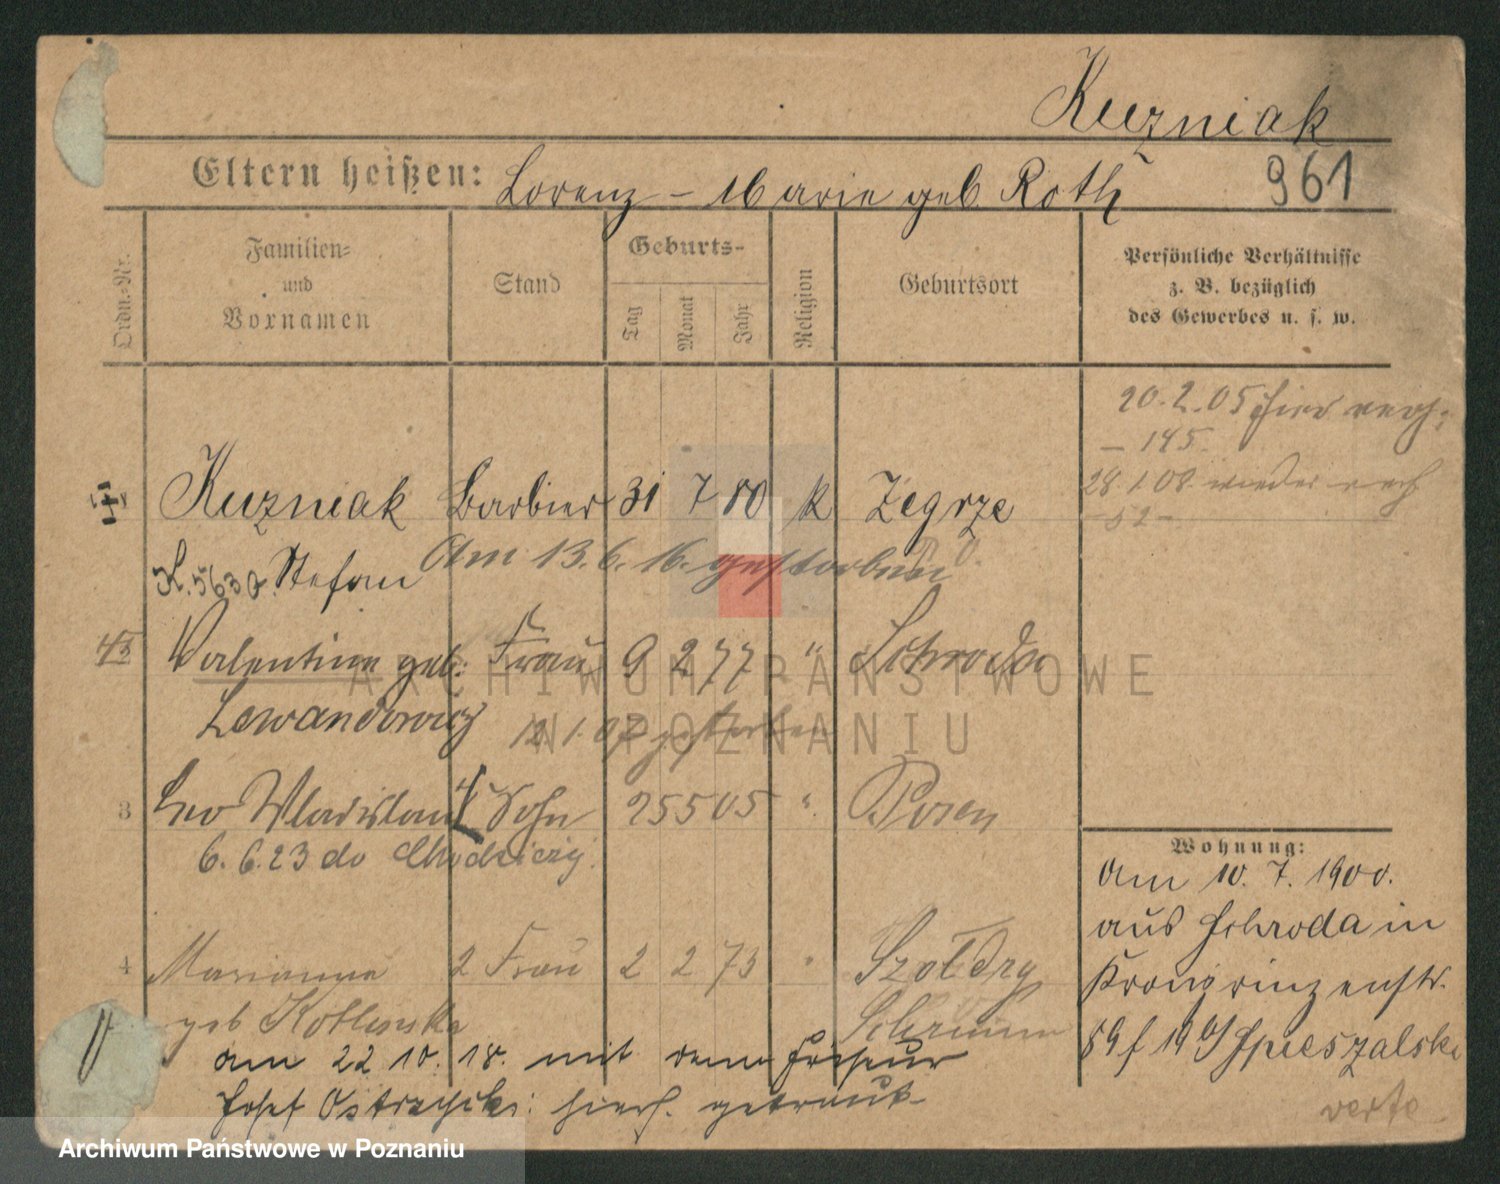 Kuzniak
Eltern heißen: Lorenz - Marie geb. Roth
961
Ordn.-Nr.
Familien-
und
Vornamen
Stand
Geburts-
Tag
Monat
Jahr
Religion
Geburtsort
Persönliche Verhältnisse
z. B. bezüglich
des Gewerbes u. s. w.
20.2.05 hier
- 145.
Kuzniak Barbier 31 7 80 k Zegrze
28.1.08 wieder
- 52 -
Stefan
Am 13.6.16. gestorben
Valentine geb. Frau 9 2 77 " Schroda
Lewandowicz
12.1.07 gestorben
3 Leo Wladislaus Sohn 25 5 05 " Posen
6.6.23 do Chodzieży.
4 Marianna 2 Frau 2 2 73 " Szołdry
geb Kotlinska Schrimm
am 22 10. 18. mit dem Friseur
Josef hier getraut
Wohnung:
Am 10. 7. 1900.
aus Schroda in
Kronprinzenstr.
verte
ARCHIWUM PAŃSTWOWE
W POZNANIU
Archiwum Państwowe w Poznaniu